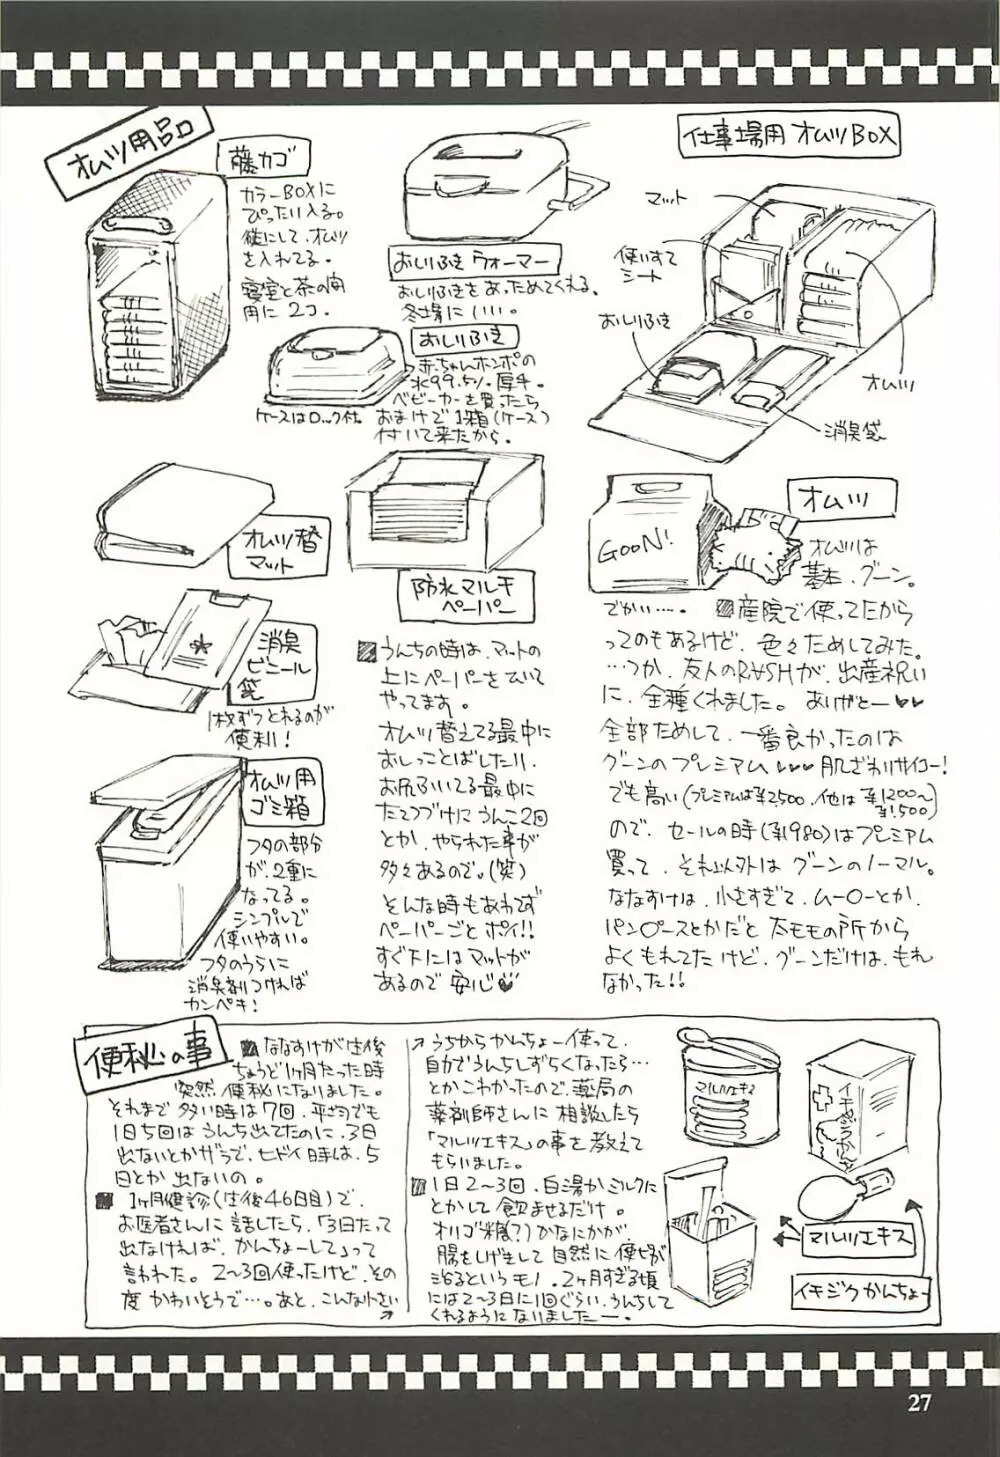 オムツ用品
藤カゴ
カラーBOXに
ぴったり入る。
縦にして、オムツ
を入れてる。
寝室と茶の間
用に2コ.
おしりふきウォーマー
おしりふきをあっためてくれる、
冬場にいい。
おしりふき
赤ちゃんホンポの
水99.5%厚手。
ベビーカーを買ったら
おまけで1箱(ケース)
付いて来たから。
ケースはロック付。
仕事場用 オムツBOX
マット
使いすて
シート
おしりふき
オムツ
消臭袋
オムツ替
マット
消臭
ビニール
袋
1枚ずつとれるのが
便利!
オムツ用
ゴミ箱
フタの部分
が、2重に
なってる。
シンプルで
使いやすい。
フタのうらに
消臭剤つければ
カンペキ!
防水マルチ
ペーパー
うんちの時は、マットの
上にペーパーをひいて
やってます。
オムツ替えてる最中に
おしっことばしたり、
お尻ふいてる最中に
たてつづけにうんこ2回
とか、やられた事が
多々あるので。(笑)
そんな時もあわてず
ペーパーごとポイ!!
すぐ下にはマットが
あるので安心♥
GooN!
オムツ
オムツは
基本、グーン。
でかい‥‥。
産院で使ってたから
ってのもあるけど、色々ためしてみた。
…つか、友人のRASHが、出産祝い
に、全種くれました。ありがとー♥♥
全部ためして、一番良かったのは
グーンのプレミアム♥♥♥肌ざわりサイコー!
でも高い(プレミアムは¥2500、他は¥1200〜
¥1500)
ので、セールの時(¥1980)はプレミアム
買って、それ以外はグーンのノーマル。
ななすけは、小さすぎて、ムー○ーとか、
パン○ースとかだと太モモの所から
よくもれてたけど、グーンだけは、もれ
なかった!!
便秘の事
ななすけが生後
ちょうど1ヶ月たった時
突然便秘になりました。
それまで多い時は7回、平均でも
1日5回はうんち出てたのに、3日
出ないとかザラで、ヒドイ時は、5
日とか出ないの。
1ヶ月健診(生後46日目)で、
お医者さんに話したら、「3日たって
出なければ、かんちょーして」って
言われた。2〜3回使ったけど、その
度かわいそうで…。あと、こんな小さい
うちからかんちょー使って、
自力でうんちしずらくなったら…
とかこわかったので、薬局の
薬剤師さんに相談したら
「マルツエキス」の事を教えて
もらいました。
1日2〜3回、白湯かミルクに
とかして飲ませるだけ。
オリゴ糖(?)かなにかが、
腸をしげきして自然に便秘が
治るというモノ。2ヶ月すぎる頃
には2〜3日に1回ぐらい、うんちして
くれるようになりましたー。
マルツエキス
イチジクかんちょう
マルツエキス
イチジクかんちょー
27